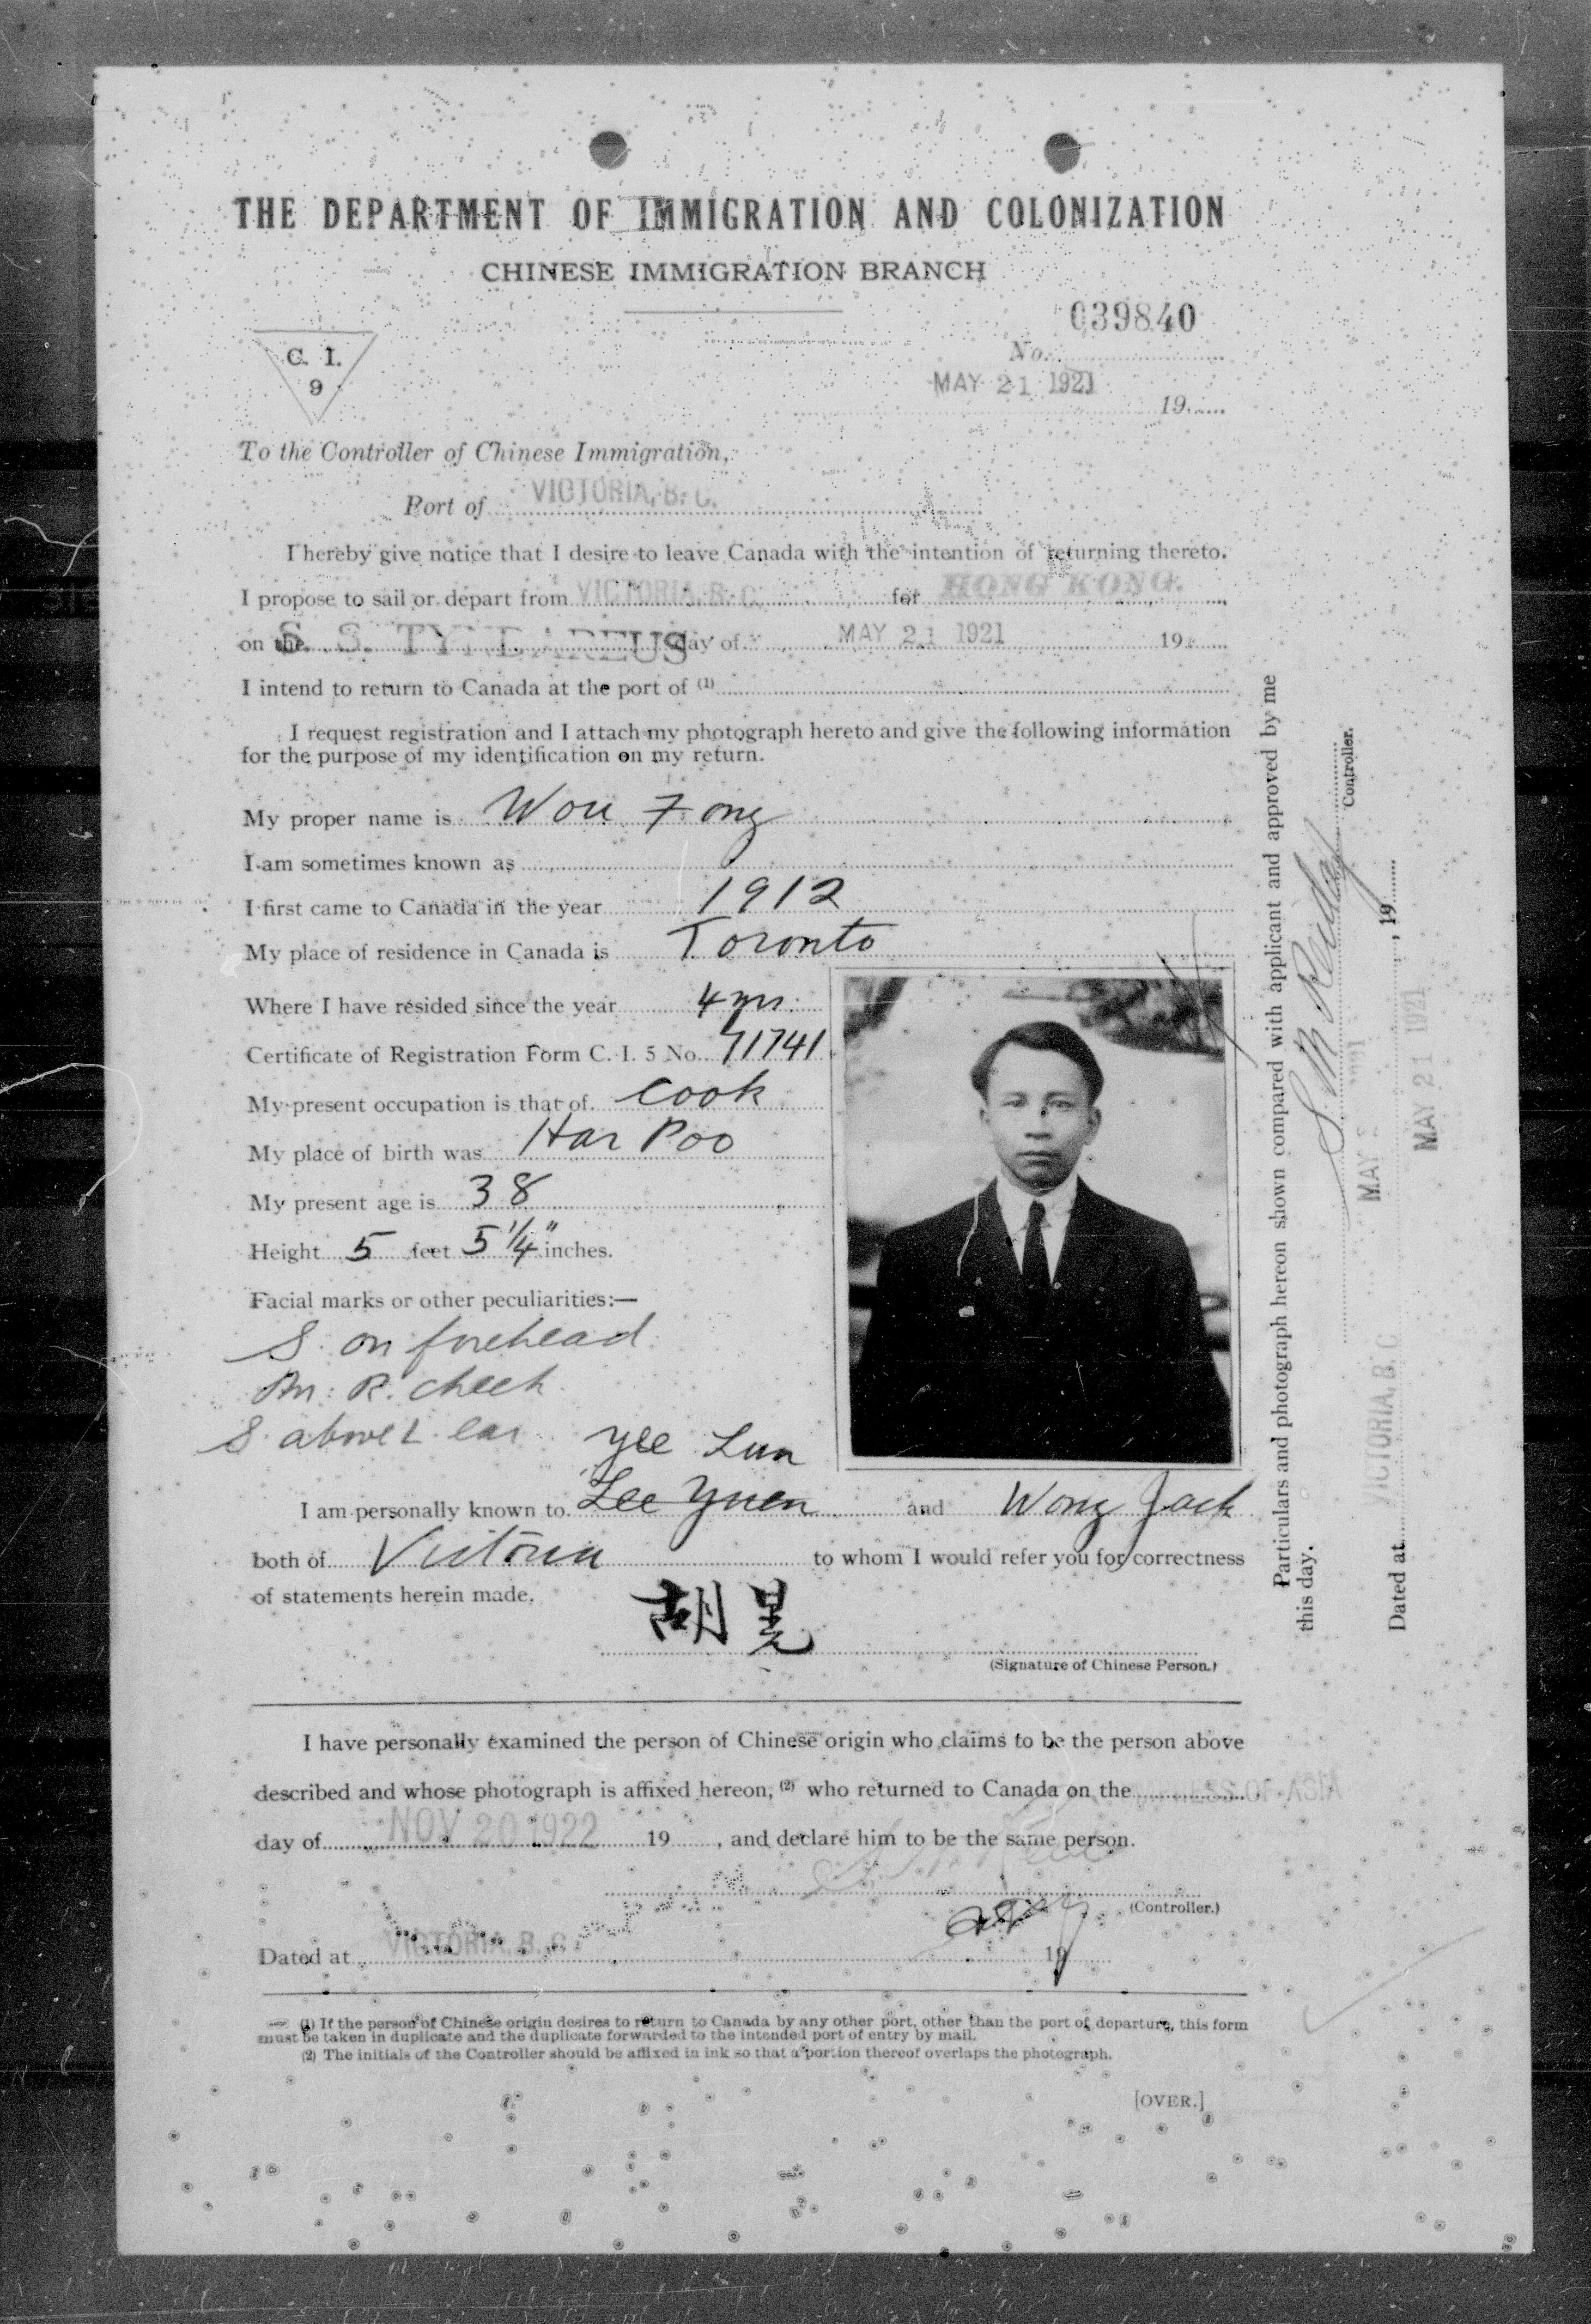 THE DEPARTMENT OF IMMIGRATION AND COLONIZATION
CHINESE IMMIGRATION BRANCH
039840
C. I.
9
No.
MAY 21 1921
19
To the Controller of Chinese Immigration,
Port of VICTORIA, B. C.
I hereby give notice that I desire to leave Canada with the intention of returning thereto.
I propose to sail or depart from VICTORIA, B. C. for HONG KONG.
on the S. S. TYNDAREUS day of MAY 21 1921 19
I intend to return to Canada at the port of (1)
I request registration and I attach my photograph hereto and give the following information
for the purpose of my identification on my return.
My proper name is Wou Fong
I am sometimes known as
I first came to Canada in the year 1912
My place of residence in Canada is Toronto
Where I have resided since the year 4 yrs.
Certificate of Registration Form C. I. 5 No. 71741
My present occupation is that of Cook
My place of birth was Har Poo
My present age is 38
Height 5 feet 5 1/4" inches.
Facial marks or other peculiarities:—
S. on forehead
M. R. cheek
S. above L. ear
Yee Lun
I am personally known to Lee Yuen and Wong Jack
both of Victoria to whom I would refer you for correctness
of statements herein made.
胡晃
(Signature of Chinese Person.)
I have personally examined the person of Chinese origin who claims to be the person above
described and whose photograph is affixed hereon, (2) who returned to Canada on the EMPRESS OF ASIA
day of NOV 20 1922 19 , and declare him to be the same person.
(Controller.)
Dated at VICTORIA, B. C. 19
(1) If the person of Chinese origin desires to return to Canada by any other port, other than the port of departure, this form
must be taken in duplicate and the duplicate forwarded to the intended port of entry by mail.
(2) The initials of the Controller should be affixed in ink so that a portion thereof overlaps the photograph.
[OVER.]
Particulars and photograph hereon shown compared with applicant and approved by me
this day.
Controller.
MAY 2 1921
Dated at VICTORIA, B. C. , 19
MAY 21 1921